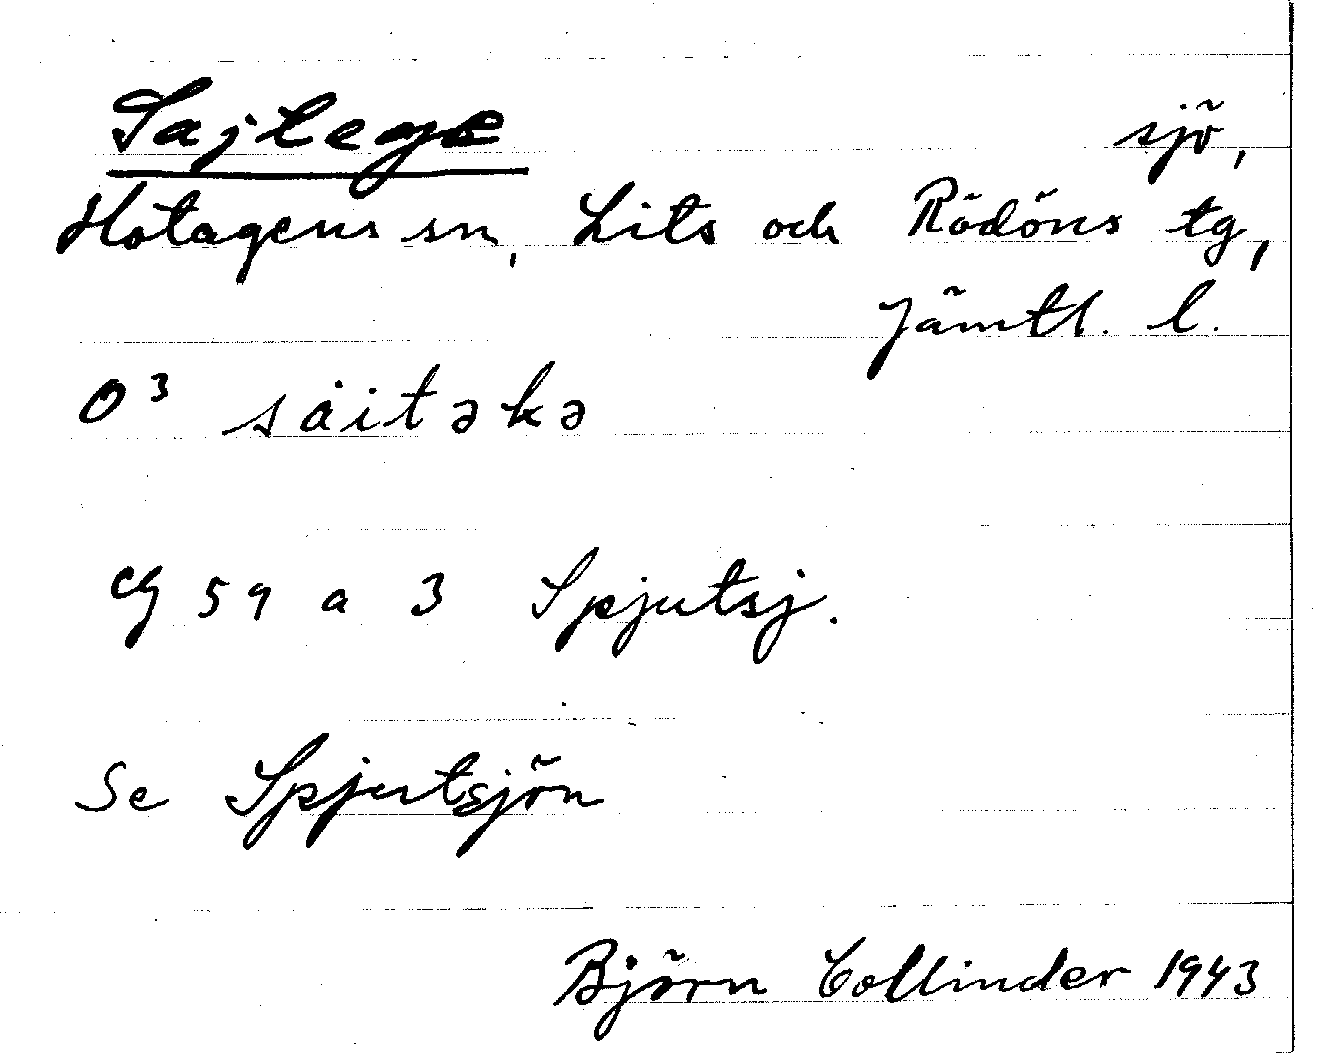 Sajtege sjö,
Hotagens sn, Lits och Rödöns tg,
Jämtl. l.
O³ sȧitəkə
CG 59 a 3 Spjutsj.
Se Spjutsjön
Björn Collinder 1943